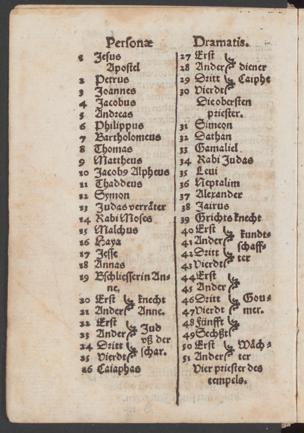 Personæ Dramatis.
1 Jesus
Apostel
2 Petrus
3 Joannes
4 Jacobus
5 Andreas
6 Philippus
7 Bartholomeus
8 Thomas
9 Mattheus
10 Jacobs Alpheus
11 Thaddeus
12 Symon
13 Judas verräter
14 Rabi Moses
15 Malchus
16 Haya
17 Jesse
18 Annas
19 Bschliesserin An-
ne.
20 Erst knecht
21 Ander Anne.
22 Erst
23 Ander Jud
24 Dritt vß der
25 Vierdt schar.
26 Caiaphas
27 Erst
28 Ander diener
29 Dritt Caiphe
30 Vierdt
Die obersten
priester.
31 Simeon
32 Dathan
33 Gamaliel
34 Rabi Judas
35 Leui
36 Neptalim
37 Alexander
38 Jairus
39 Grichts knecht
40 Erst kundt-
41 Ander schaff-
42 Dritt ter
43 Vierdt
44 Erst
45 Ander
46 Dritt Gou-
47 Vierdt mer.
48 Fünfft
49 Sechßt
50 Erst Wäch-
51 Ander ter
Vier priester des
tempels.